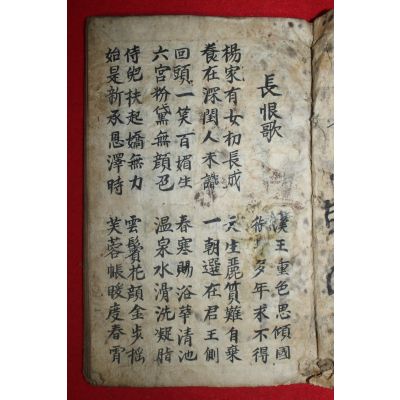 長恨歌
漢王重色思傾國
御多年求不得
楊家有女初長成
養在深閨人未識
天生麗質難自棄
一朝選在君王側
回頭一笑百媚生
六宮粉黛無顔色
春寒賜浴華清池
温泉水滑洗凝脂
侍兒扶起嬌無力
始是新承恩澤時
雲鬢花顔金步搖
芙蓉帳暖度春宵